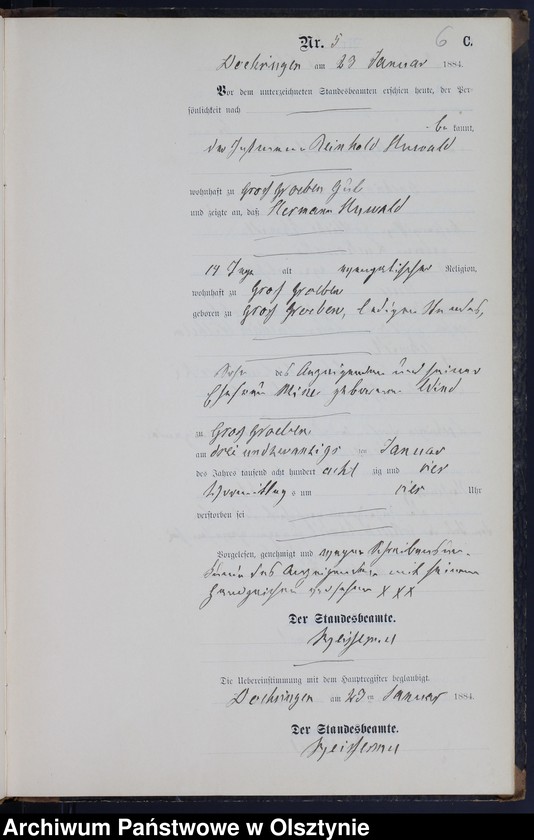 Nr. 5 6 C.
Doehringen am 23 Januar 1884.
Vor dem unterzeichneten Standesbeamten erschien heute, der Per-
sönlichkeit nach
be kannt,
der Instmann Reinhold
wohnhaft zu Groß Groeben Gut
und zeigte an, daß Hermann
14 Tage alt evangelischer Religion,
wohnhaft zu Groß Groeben
geboren zu Groß Groeben, ledigen Standes,
Sohn des Anzeigenden und seiner
Ehefrau geborenen
zu Groß Groeben
am drei und zwanzigs ten Januar
des Jahres tausend acht hundert acht zig und vier
Vormittag s um vier Uhr
verstorben sei
Vorgelesen, genehmigt und wegen Schreibensun-
kunde des Anzeigenden mit seinem
Handzeichen versehen XXX
Der Standesbeamte.
Die Uebereinstimmung mit dem Hauptregister beglaubigt.
Doehringen am 23 ten Januar 1884.
Der Standesbeamte.
Archiwum Państwowe w Olsztynie